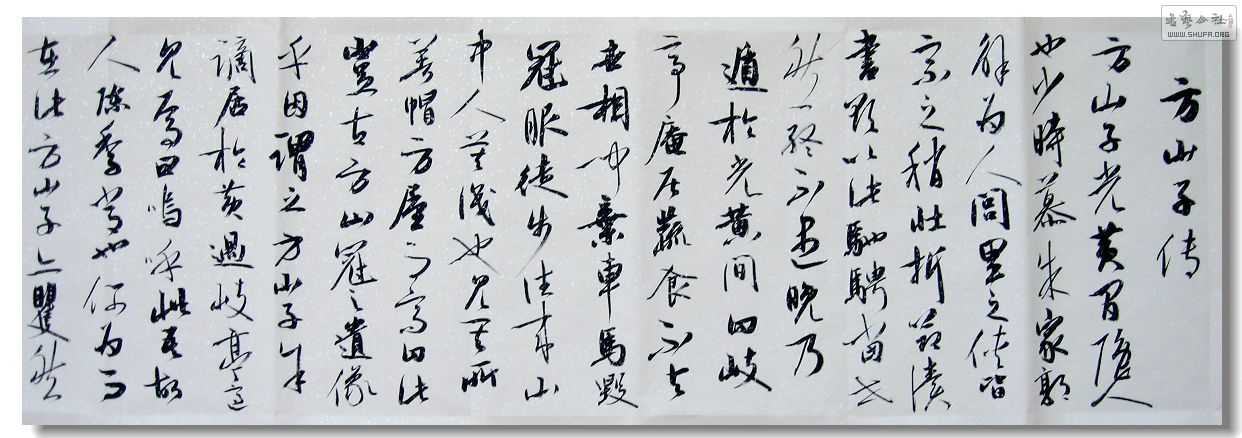 方山子传
方山子光黄间隐人
也少時慕朱家郭
解为人闾里之侠皆
宗之稍壮折节讀
書欲以此馳騁当世
然终不遇晚乃
遁於光黄间曰岐
亭庵居蔬食不与
世相闻棄車馬毀
冠服徒步往来山
中人莫識也見其所
著帽方屋而高曰此
豈古方山冠之遺像
乎因謂之方山子余
謫居於黄過岐亭適
見焉曰嗚呼此吾故
人陳季常也何为而
在此方山子亦矍然
书艺公社
WWW.SHUFA.ORG